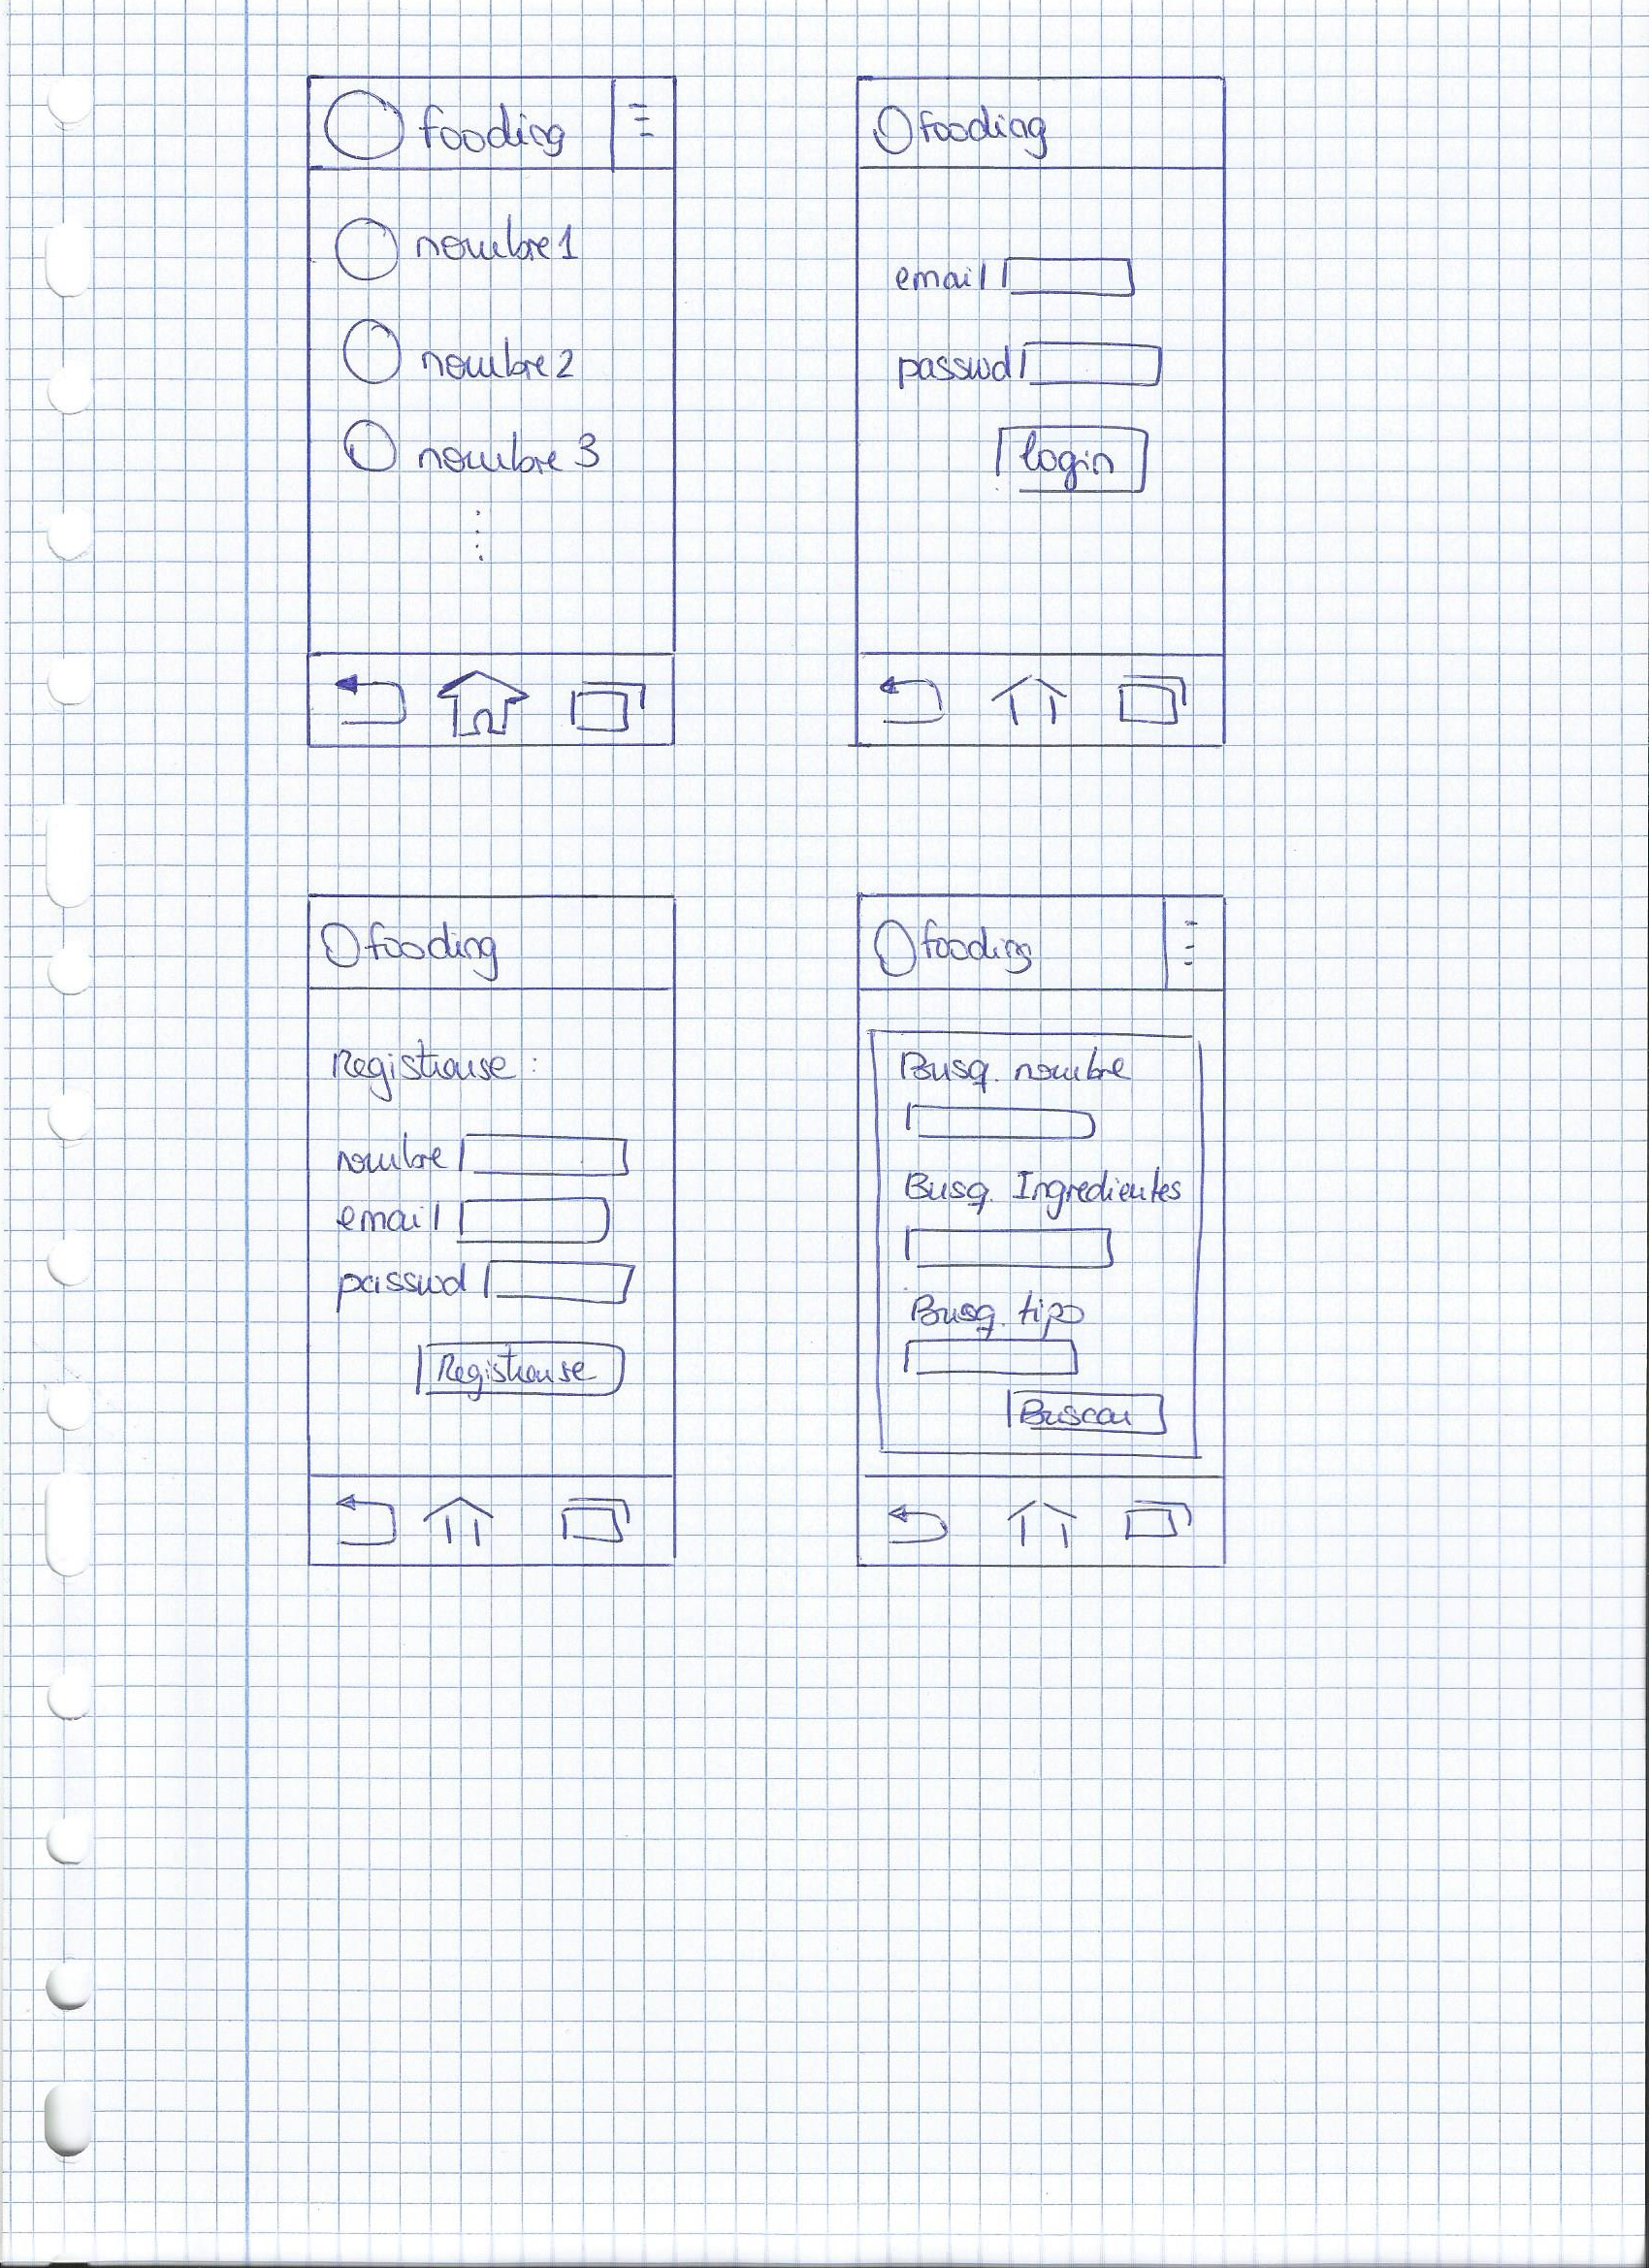 fooding
nombre1
nombre2
nombre 3
fooding
email
passwd
login
fooding
Registrarse:
nombre
email
passwd
Registrarse
fooding
Busq. nombre
Busq. Ingredientes
Busq. tipo
Buscar